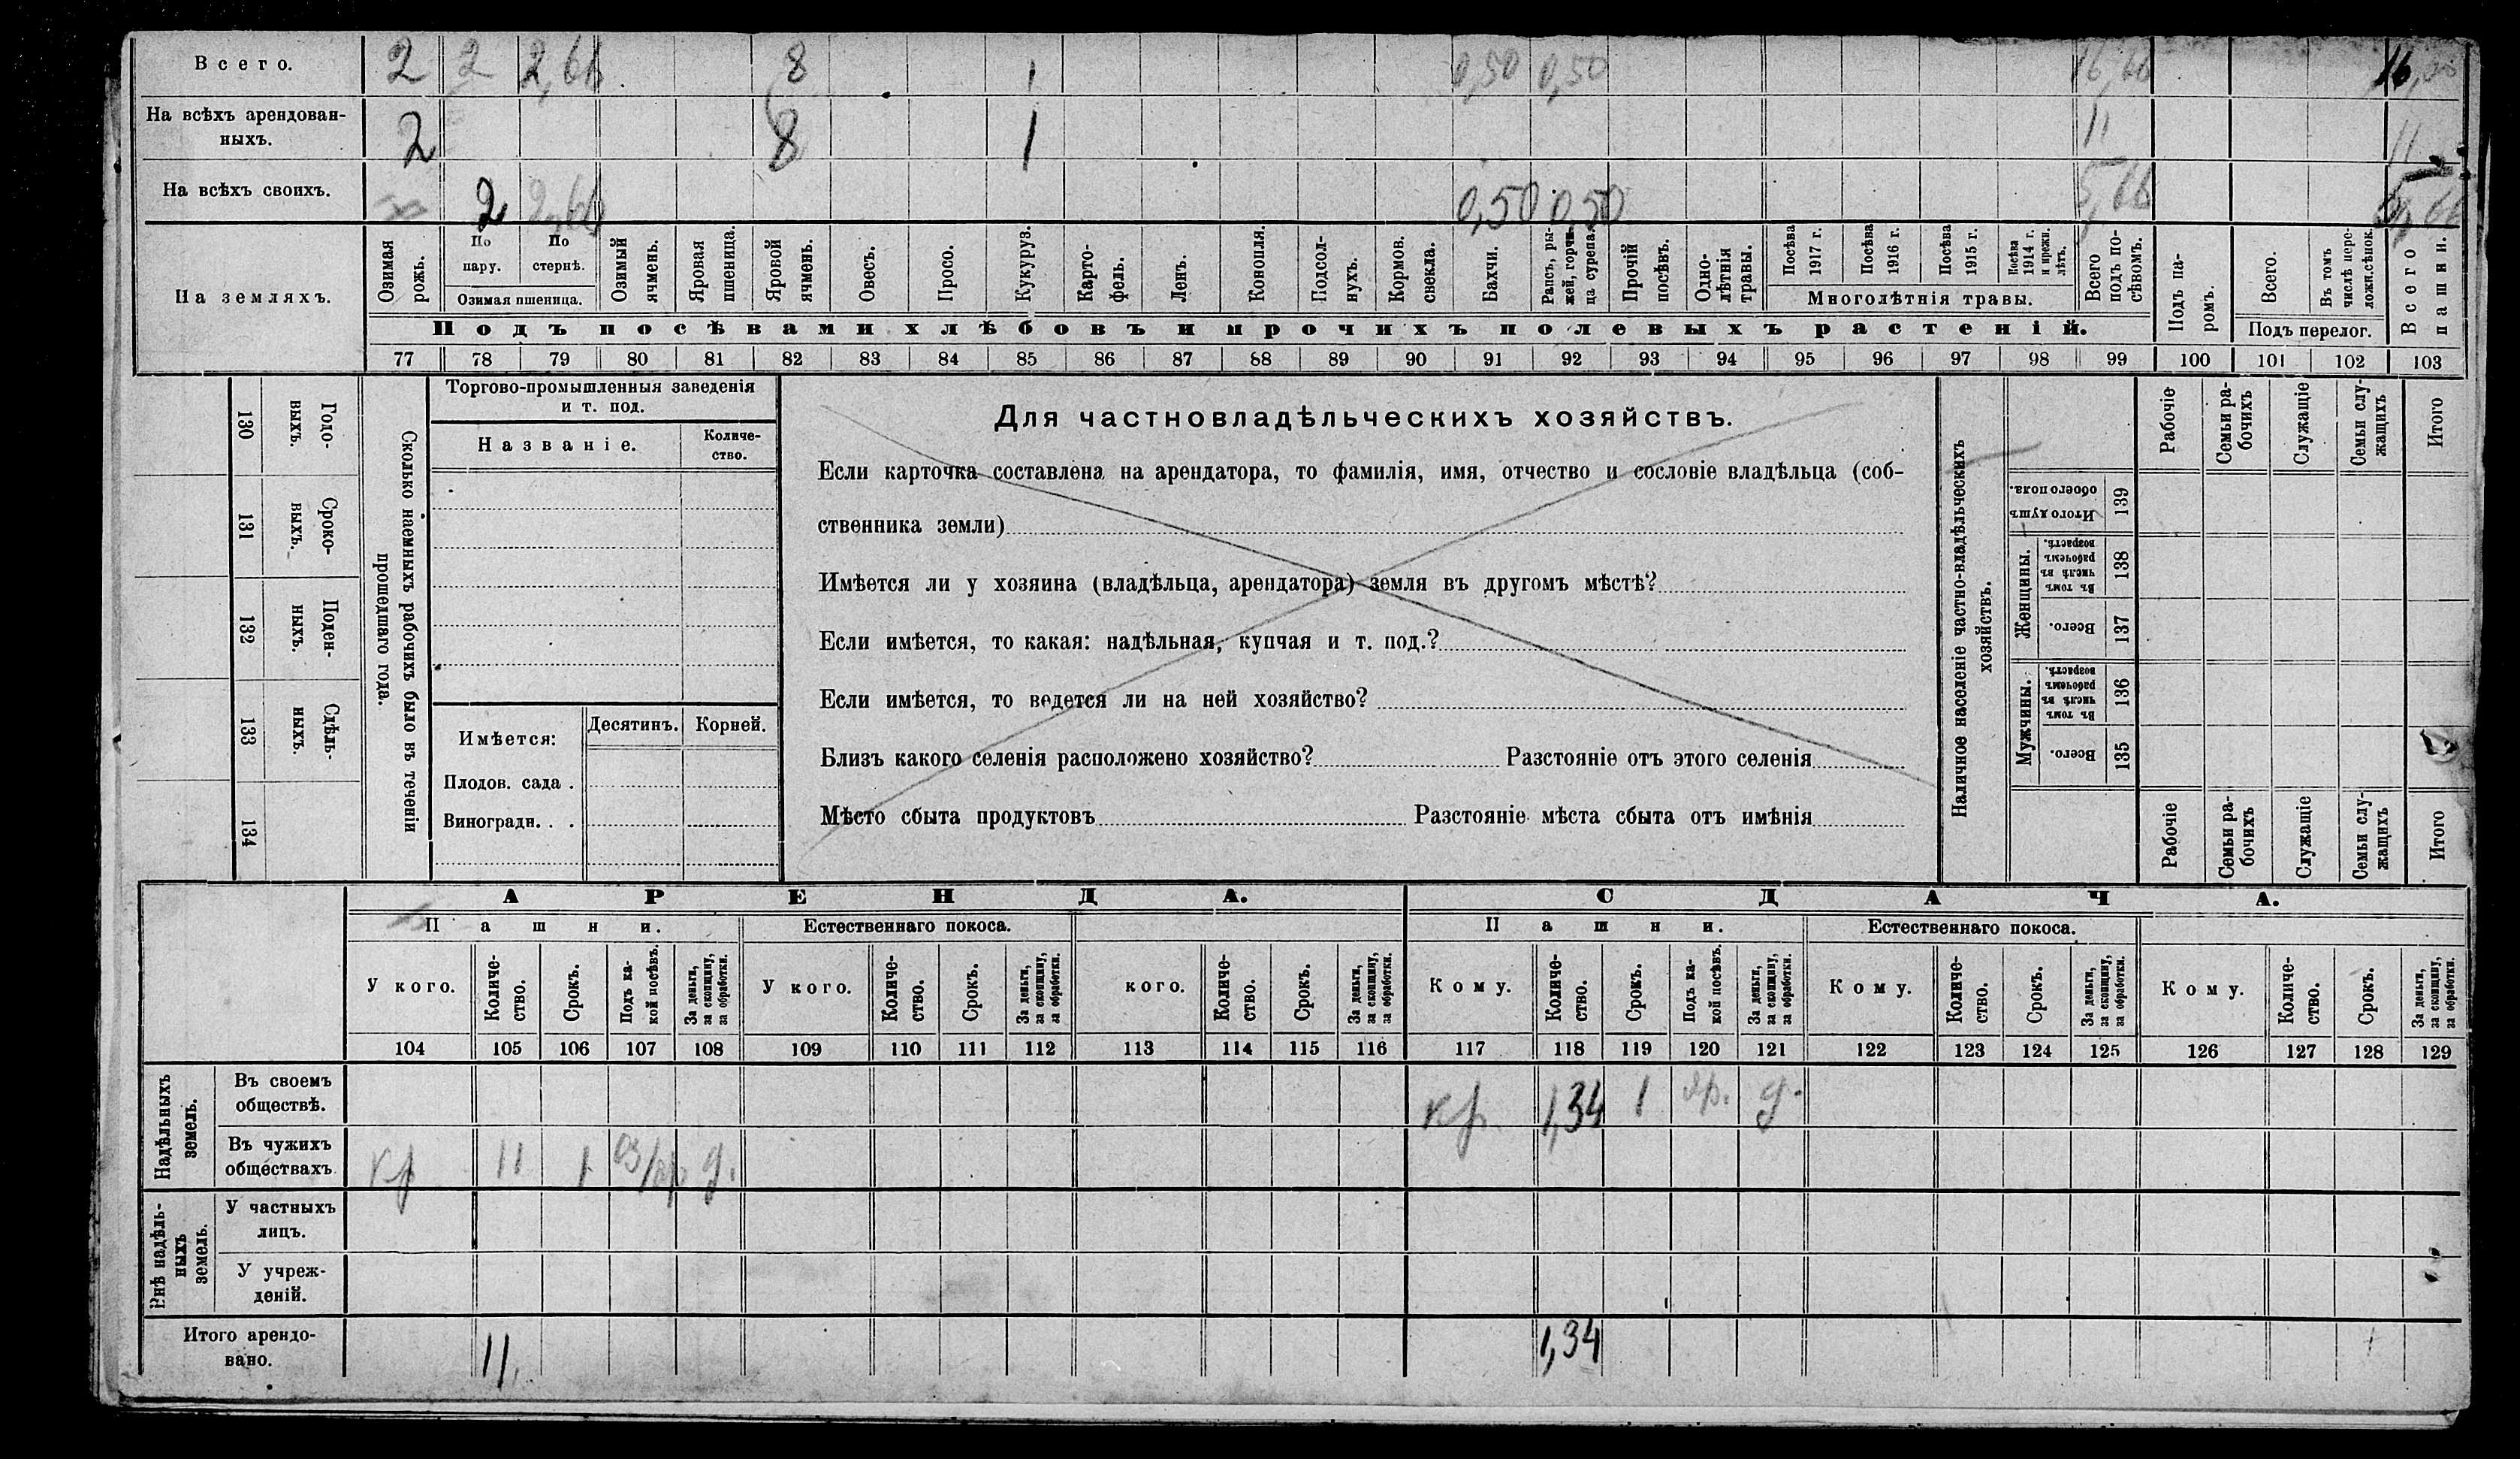 Всего. 2 2 2,66 8 1 0,50 0,50 16,66 16,66
На всѣхъ арендован-
ныхъ. 2 8 1 11 11
На всѣхъ своихъ. 2 2,66 0,50 0,50 5,66 5,66
На земляхъ.
Озимая рожь.
По пару.
По стернѣ.
Озимая пшеница.
Озимый ячмень.
Яровая пшеница.
Яровой ячмень.
Овесъ.
Просо.
Кукуруз.
Карто-
фель.
Ленъ.
Конопля.
Подсол-
нухъ.
Кормов. свекла.
Бахчи.
Рапсъ, ры-
жей, горчи-
ца сурепа.
Прочій посѣвъ.
Одно-
лѣтнія травы.
Посѣва 1917 г.
Посѣва 1916 г.
Посѣва 1915 г.
Посѣва 1914 г. и прежн. лѣтъ.
Многолѣтнія травы.
Всего подъ по-
сѣвомъ.
Подъ па-
ромъ.
Всего.
Въ томъ числѣ пере-
ложн.сѣнок.
Подъ перелог.
Всего пашни.
Подъ посѣвами хлѣбовъ и прочихъ полевыхъ растеній.
77 78 79 80 81 82 83 84 85 86 87 88 89 90 91 92 93 94 95 96 97 98 99 100 101 102 103
130 Годо-
выхъ.
131 Сроко-
выхъ.
132 Поден-
ныхъ.
133 Сдѣль-
ныхъ.
134
Сколько наемныхъ рабочихъ было въ теченіи
прошедшаго года.
Торгово-промышленныя заведенія
и т. под.
Названіе.
Количе-
ство.
Имѣется:
Десятинъ. Корней.
Плодов. сада .
Виноградн. . .
Для частновладѣльческихъ хозяйствъ.
Если карточка составлена на арендатора, то фамилія, имя, отчество и сословіе владѣльца (соб-
ственника земли)
Имѣется ли у хозяина (владѣльца, арендатора) земля въ другомъ мѣстѣ?
Если имѣется, то какая: надѣльная, купчая и т. под.?
Если имѣется, то ведется ли на ней хозяйство?
Близъ какого селенія расположено хозяйство? Разстояніе отъ этого селенія
Мѣсто сбыта продуктовъ Разстояніе мѣста сбыта отъ имѣнія
Наличное населеніе частно-владѣльческихъ
хозяйствъ.
Рабочіе
Семьи ра-
бочихъ
Служащіе
Семьи слу-
жащихъ
Итого
Итого душъ обоего пола. 139
Женщины.
Въ томъ числѣ въ рабочемъ возрастѣ. 138
Всего. 137
Мужчины.
Въ томъ числѣ въ рабочемъ возрастѣ. 136
Всего. 135
Рабочіе
Семьи ра-
бочихъ
Служащіе
Семьи слу-
жащихъ
Итого
АРЕНДА. СДАЧА.
Пашни. Естественнаго покоса. Пашни. Естественнаго покоса.
У кого.
Количе-
ство.
Срокъ.
Подъ ка-
кой посѣвъ.
За деньги, за скопщину, за обработки.
У кого.
Количе-
ство.
Срокъ.
За деньги, за скопщину, за обработки.
кого.
Количе-
ство.
Срокъ.
За деньги, за скопщину, за обработки.
Кому.
Количе-
ство.
Срокъ.
Подъ ка-
кой посѣвъ.
За деньги, за скопщину, за обработки.
Кому.
Количе-
ство.
Срокъ.
За деньги, за скопщину, за обработки.
Кому.
Количе-
ство.
Срокъ.
За деньги, за скопщину, за обработки.
104 105 106 107 108 109 110 111 112 113 114 115 116 117 118 119 120 121 122 123 124 125 126 127 128 129
Надѣльныхъ
земель.
Въ своемъ
обществѣ. кр. 1,34 1 яр. д.
Въ чужихъ
обществахъ кр 11 1 оз/яр д.
Внѣ надѣль-
ныхъ
земель.
У частныхъ
лицъ.
У учреж-
деній.
Итого арендо-
вано. 11. 1,34